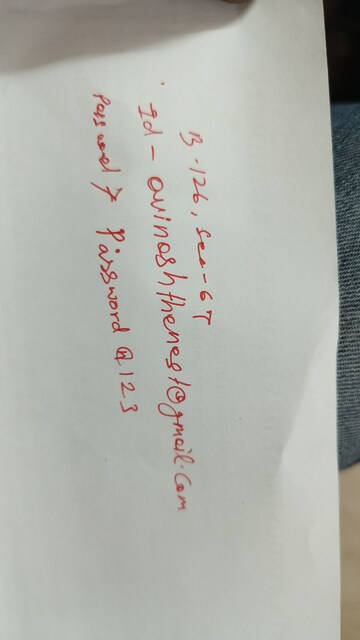 B-126, Sec-67
Id - avinashthenest@gmail.com
Password > Password@123